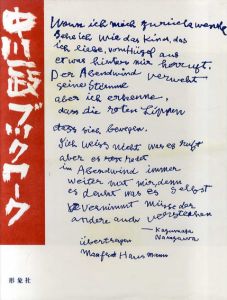 中川一政ブックワーク
Wenn ich mich zurückwende
Sehe ich wie das Kind, das
ich liebe, vom Hügel aus
etwas hinter mir herruft.
Der Abendwind verweht
seine Stimme
aber ich erkenne,
dass die roten Lippen
dass sich bewegen.
Ich weiss nicht was es ruft
aber es
im Abendwind immer
weiter
es was es selbst
vernimmt müsse der
andere auch verstehen
— Kazumasa
Nakagawa
übertragen
Manfred Hausmann
形象社